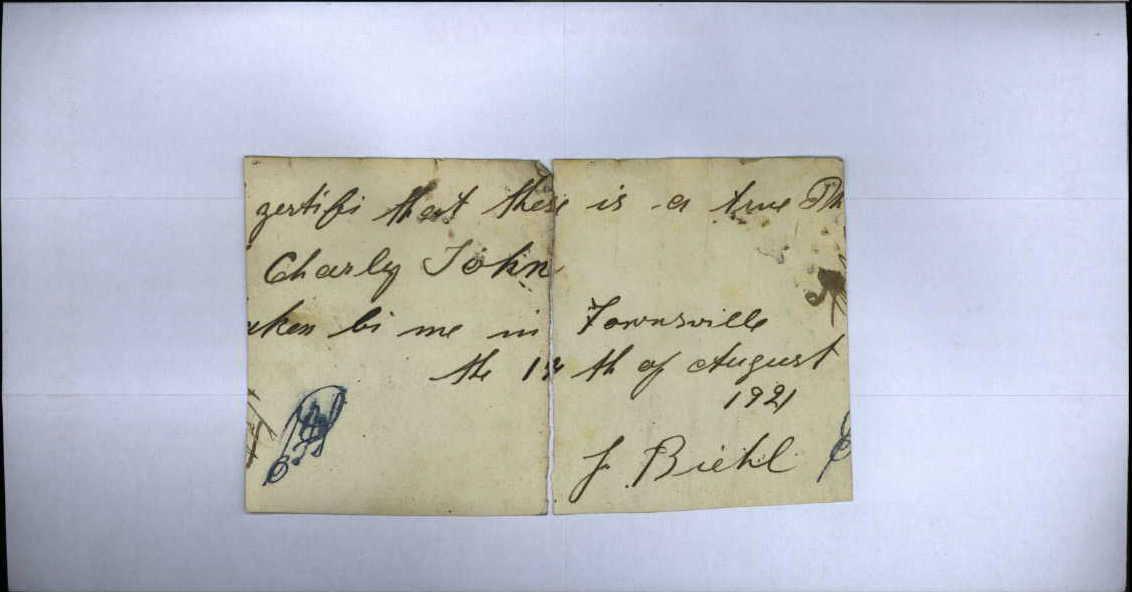 zertifi that these is a true Ph
Charly John
aken bi me in Townsville
the th of August
1921
J Biehl